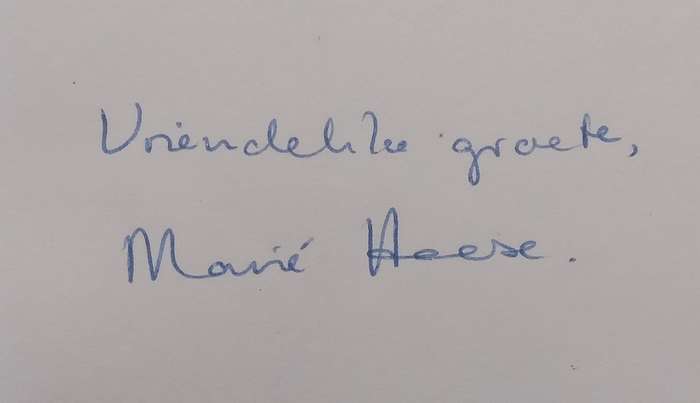 Vriendelike groete,
Marié Heese.